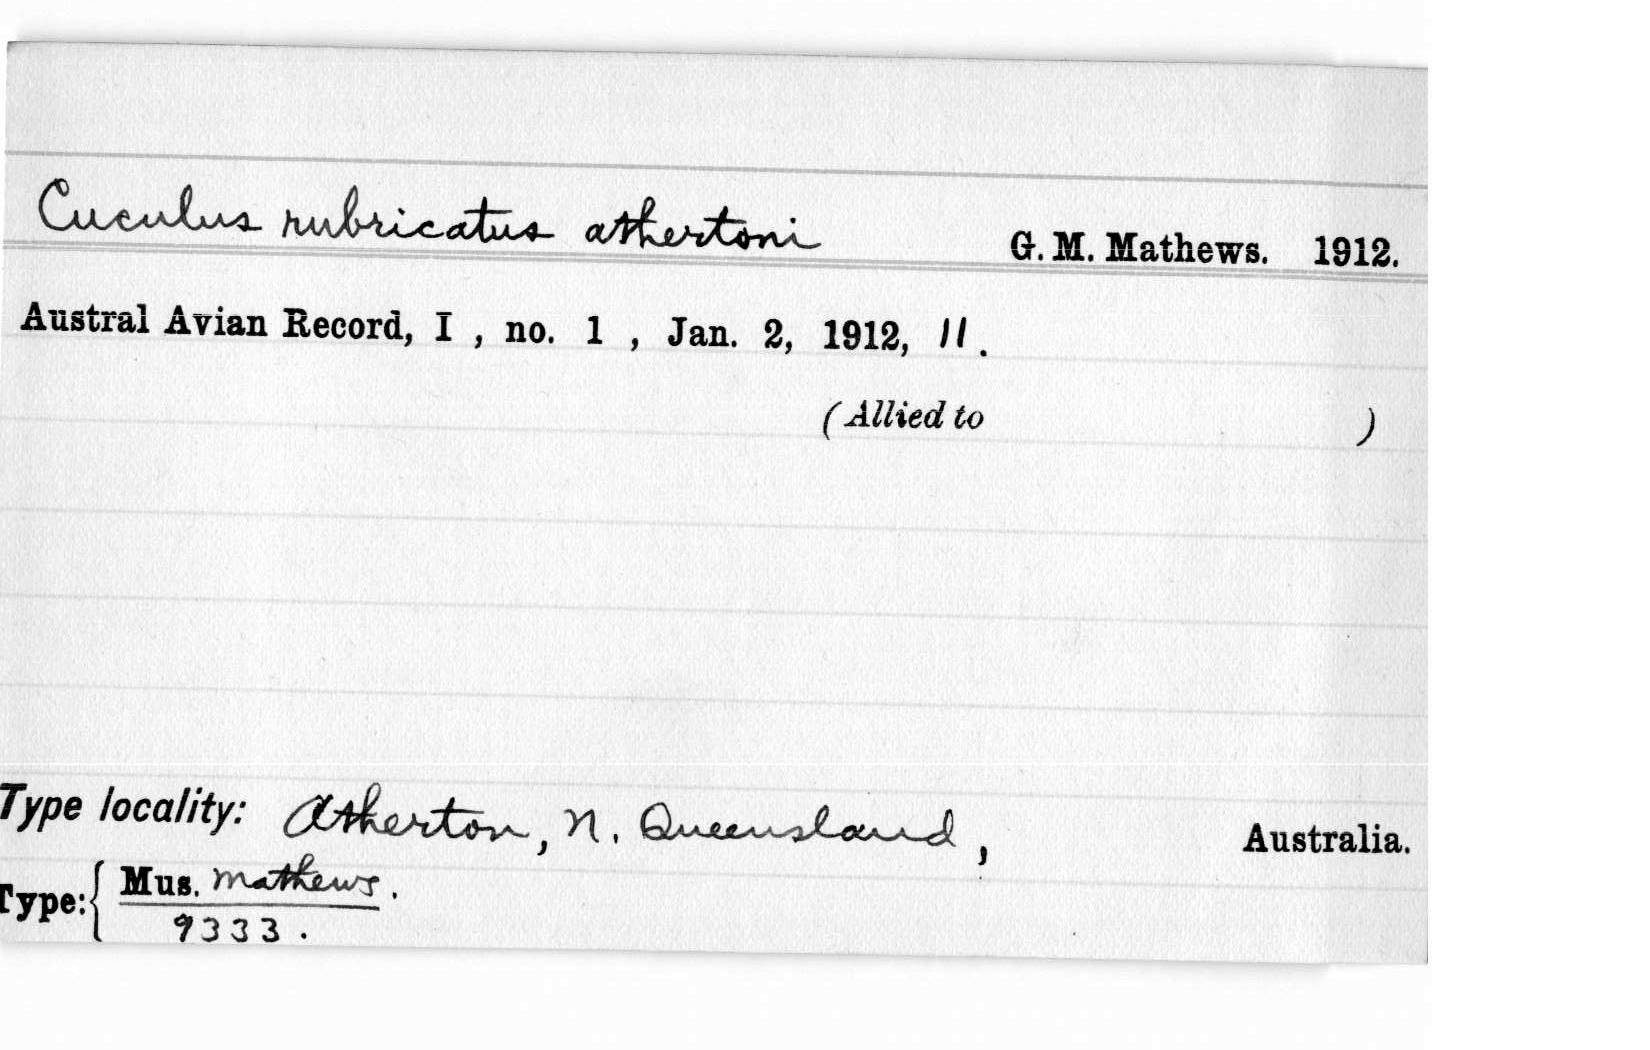 Cuculus rubricatus athertoni G. M. Mathews. 1912.
Austral Avian Record, I , no. 1 , Jan. 2, 1912, 11.
(Allied to )
Type locality: Atherton, N. Queensland, Australia.
Type: { Mus. Mathews.
9333.